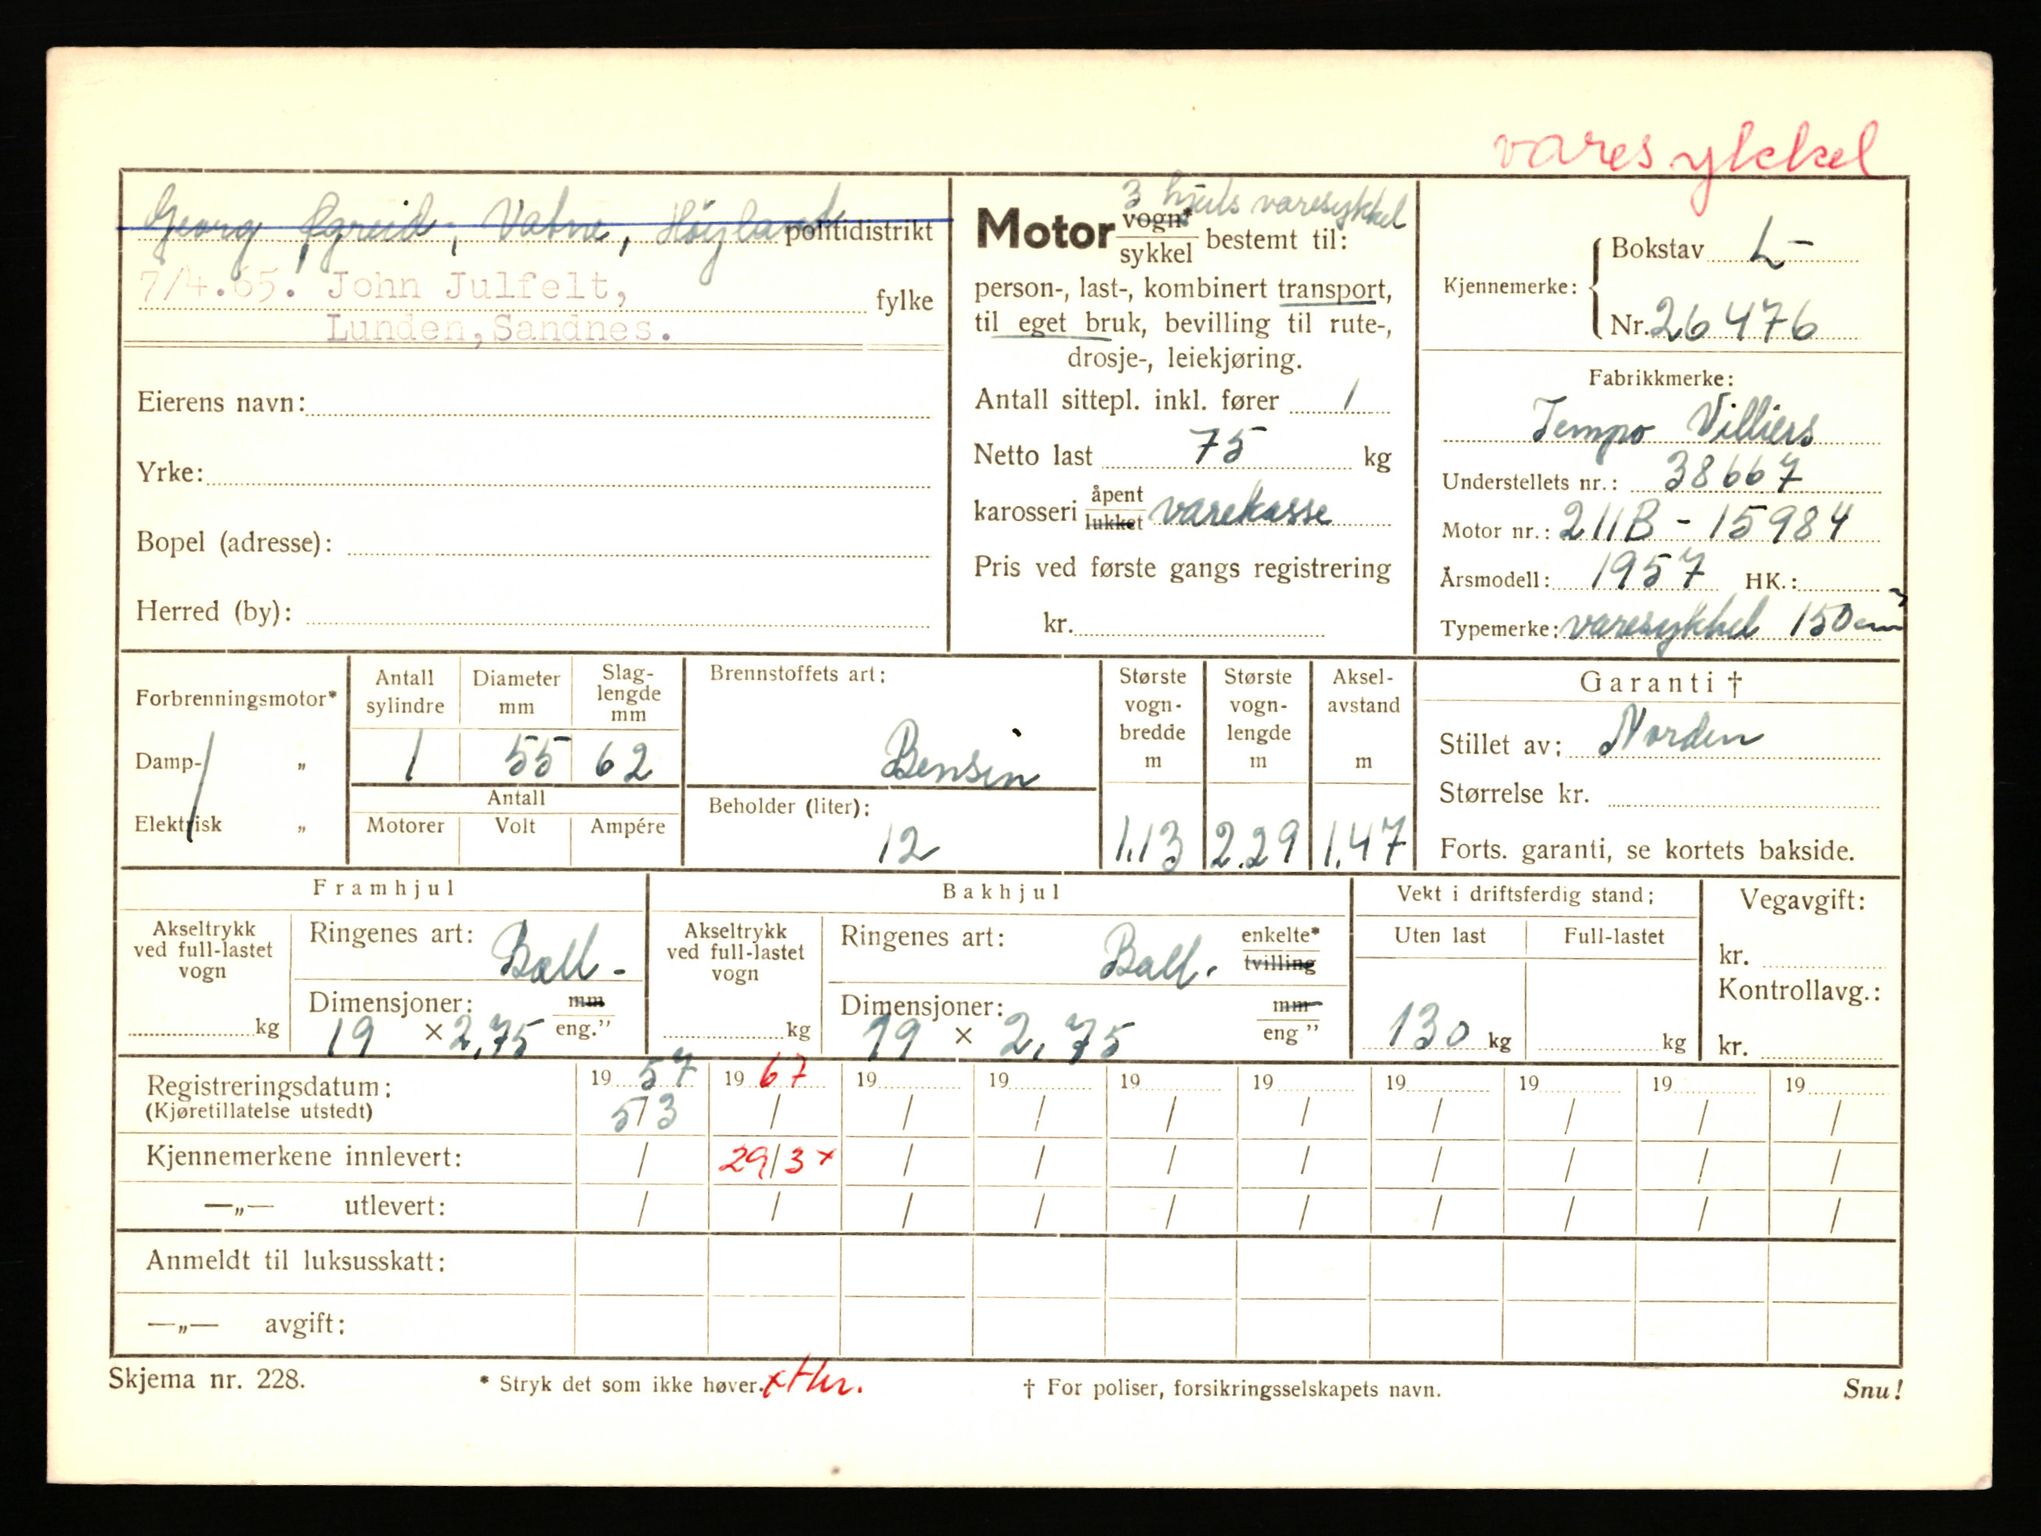 varesykkel
Georg Øgreid, Vatne, Höyland politidistrikt
7/4.65. John Julfelt, fylke
Lunden, Sandnes.
Eierens navn:
Yrke:
Bopel (adresse):
Herred (by):
3 hjuls varesykkel
Motor vogn* sykkel bestemt til:
person-, last-, kombinert transport,
til eget bruk, bevilling til rute-,
drosje-, leiekjøring.
Antall sittepl. inkl. fører 1
Netto last 75 kg
karosseri åpent lukket varekasse
Pris ved første gangs registrering
kr.
Kjennemerke: Bokstav L-
Nr. 26476
Fabrikkmerke:
Tempo Villiers
Understellets nr.: 38667
Motor nr.: 211B - 15984
Årsmodell: 1957 HK.:
Typemerke: varesykkel 150 cm³
Forbrenningsmotor*
Damp- „
Elektrisk „
Antall sylindre Diameter mm Slag-lengde mm
1 55 62
Antall
Motorer Volt Ampére
Brennstoffets art:
Bensin
Beholder (liter):
12
Største vogn-bredde m Største vogn-lengde m Aksel-avstand m
1.13 2.29 1.47
Garanti †
Stillet av: Norden
Størrelse kr.
Forts. garanti, se kortets bakside.
Framhjul
Akseltrykk ved full-lastet vogn
kg
Ringenes art: Ball-
Dimensjoner: mm
19 × 2,75 eng.”
Bakhjul
Akseltrykk ved full-lastet vogn
kg
Ringenes art: Ball. enkelte* tvilling
Dimensjoner: mm
19 × 2,75 eng ”
Vekt i driftsferdig stand:
Uten last Full-lastet
130 kg kg
Vegavgift:
kr.
Kontrollavg.:
kr.
Registreringsdatum: 19 57 19 67 19 19 19 19 19 19 19 19
(Kjøretillatelse utstedt) 5/3 / / / / / / / / /
Kjennemerkene innlevert: / 29/3 x / / / / / / / /
—„— utlevert: / / / / / / / / / /
Anmeldt til luksusskatt:
—„— avgift:
Skjema nr. 228. * Stryk det som ikke høver. x † For poliser, forsikringsselskapets navn. Snu!